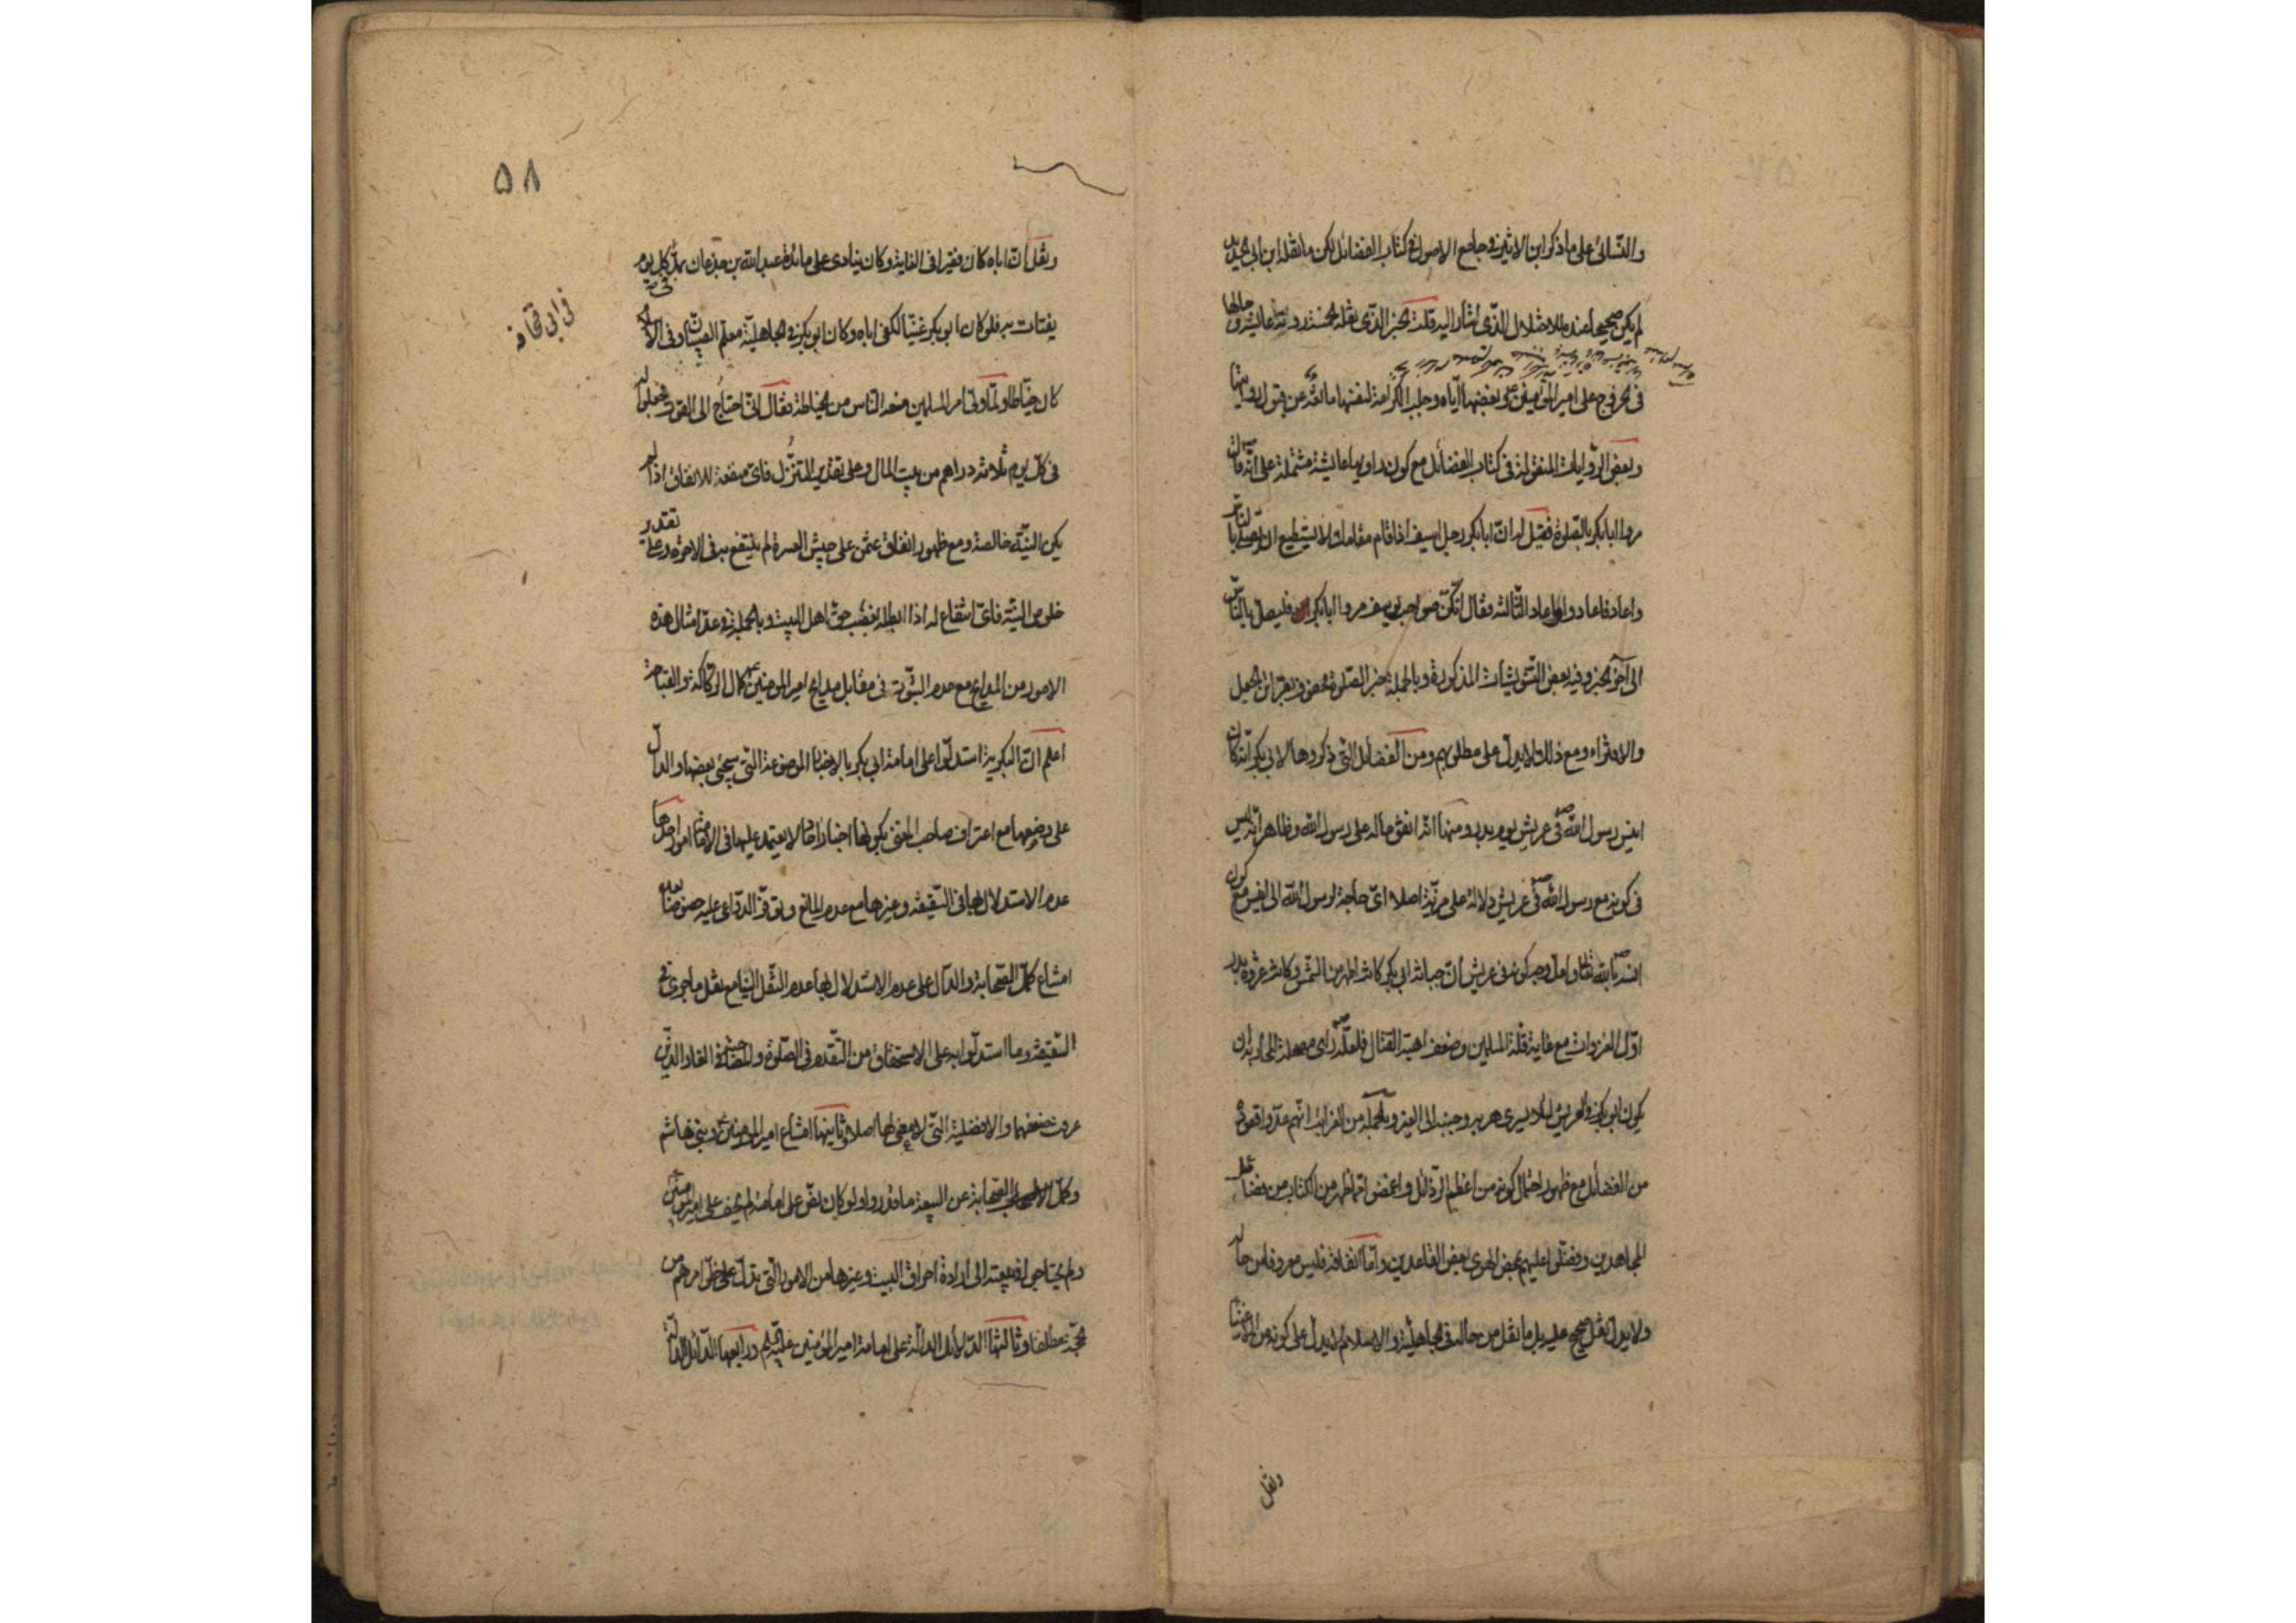 والنسائی علی ما ذکر ابن الاثیر فی جامع الاصول فی کتاب الفضائل لکن ما نقله ابن ابی الحدید
لم یکن صحیحا عنده للاختلال الذی اشار الیه قلت الخبر الذی نقله عایشة و حالها
فی الخروج علی امیر المؤمنین ع و بغضها ایاه و جلب الکرامة لنفسها مانعة عن قبول روایتها
و بعض الروایات المنقولة فی کتاب الفضائل مع کون راویها عایشة مشتملة علی انه قال
مروا ابابکر بالصلوة فقیل له ان ابابکر رجل اسیف اذا قام مقامک لا یستطیع ان یصلی بالناس
و اعاد فاعادوا فاعاد الثالثة فقال انکن صواحب یوسف مروا ابابکر فلیصل بالناس
الی آخر الخبر و فیه بعض التشویشات المذکورة و بالجملة خبر الصلوة محض الجعل
والافتراء و مع ذلک لا یدل علی مطلوبهم و من الفضائل التی ذکروها لابی بکر انه کان
انیس رسول الله ص فی عریش یوم بدر و منها انه انفق ماله علی رسول الله و ظاهر انه لیس
فی کونه مع رسول الله ص فی عریش دلالة علی مزیة اصلا ای حاجة لرسول الله الی انیس مع کون
انسه بالله تعالی و لعل وجه کونه فی عریش ان جبانة ابی بکر کانت اظهر من الشمس و کانت غزوة بدر
اول الغزوات مع غایة قلة المسلمین و ضعف اهبة القتال فلعله ص رای مصلحة الحال ان
یکون ابوبکر فی العریش لئلا یسری هربه و جبنه الی الغیر و بالجملة من الغرایب انهم عدوا قعوده
من الفضائل مع ظهور احتمال کونه من اعظم الرذائل و اغمضوا عما ظهر من الکتاب من فضل
المجاهدین و فضلوا علیهم بمحض الهوی بعض القاعدین و اما انفاقه فلیس معروفا من حاله
ولا یدل نقل صحیح علیه بل ما نقل من حاله فی الجاهلیة و الاسلام لا یدل علی کونه من الاغنیاء
ونقل
۵۸
و نقل ان اباه کان فقیرا فی الغایة و کان ینادی علی مائدة عبد الله بن جذعان بمد کل یوم
یقتات به فلو کان ابوبکر غنیا لکفی اباه و کان ابوبکر فی الجاهلیة معلم الصبیان و فی الاسلام
فی ابی قحافه
کان خیاطا و لما ولی امر المسلمین منعه الناس من الخیاطة فقال انی احتاج الی القوت فجعلوا له
فی کل یوم ثلاثة دراهم من بیت المال و علی تقدیر التنزل فای منفعة للانفاق اذا لم
یکن النیة خالصة و مع ظهور انفاق عثمن علی جیش العسرة لم ینتفع به فی الآخرة و علی تقدیر
خلوص النیة فای انتفاع له اذا ابطله بغصب حق اهل البیت و بالجملة فی عد امثال هذه
الامور من المدایح مع عدم الثبوت فی مقابل مدایح امیر المومنین ع کمال الرکاکة و القباحة
اعلم ان البکریة استدلوا علی امامة ابی بکر بالاخبار الموضوعة التی سیجیء بعضها و الدال
علی وضعها مع اعتراف صاحب المغنی بکونها اخبار آحاد لا یعتمد علیها فی الامامة امور احدها
عدم الاستدلال بها فی السقیفة و غیرها مع عدم المانع و توفر الدواعی علیه خصوصا بعد
امتناع کمل الصحابة و الدال علی عدم الاستدلال بها عدم النقل الینا مع نقل ما جری فی
السقیفة و ما استدلوا به علی الاستحقاق من التقدم فی الصلوة و الصحبة فی الغار الذین
عرفت ضعفهما و الافضلیة التی لا معنی لها اصلا و ثانیها امتناع امیر المومنین ع و بنی هاشم
و کمل الصحابة عن البیعة ما قدروا و لو کان نص علی امامته لم یخف علی امیر المؤمنین
و لم یحتاجوا فی بیعته الی ارادة احراق البیت و غیرها من الامور التی تدل علی خلو امرهم من
حجة مطلقا و ثالثها الدلائل الدالة علی امامة امیر المؤمنین علیه السلم و رابعها الدلائل الدالة